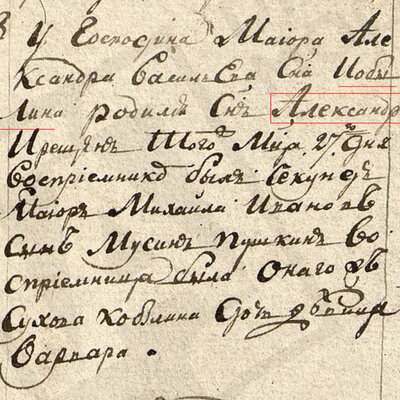 У Господина Маіора Але
ксандра Василева Сна Кобы
лина родилсѧ Снъ Александръ
Крещенъ Того Мца 27го Дня
Восприемникъ былъ Секундъ
Маіоръ Михайла Ивановъ
Сынъ Мусинъ Пушкинъ Во
спріемница была Онаго
Сухова Кобылина Дочь дѣвица
Варвара .